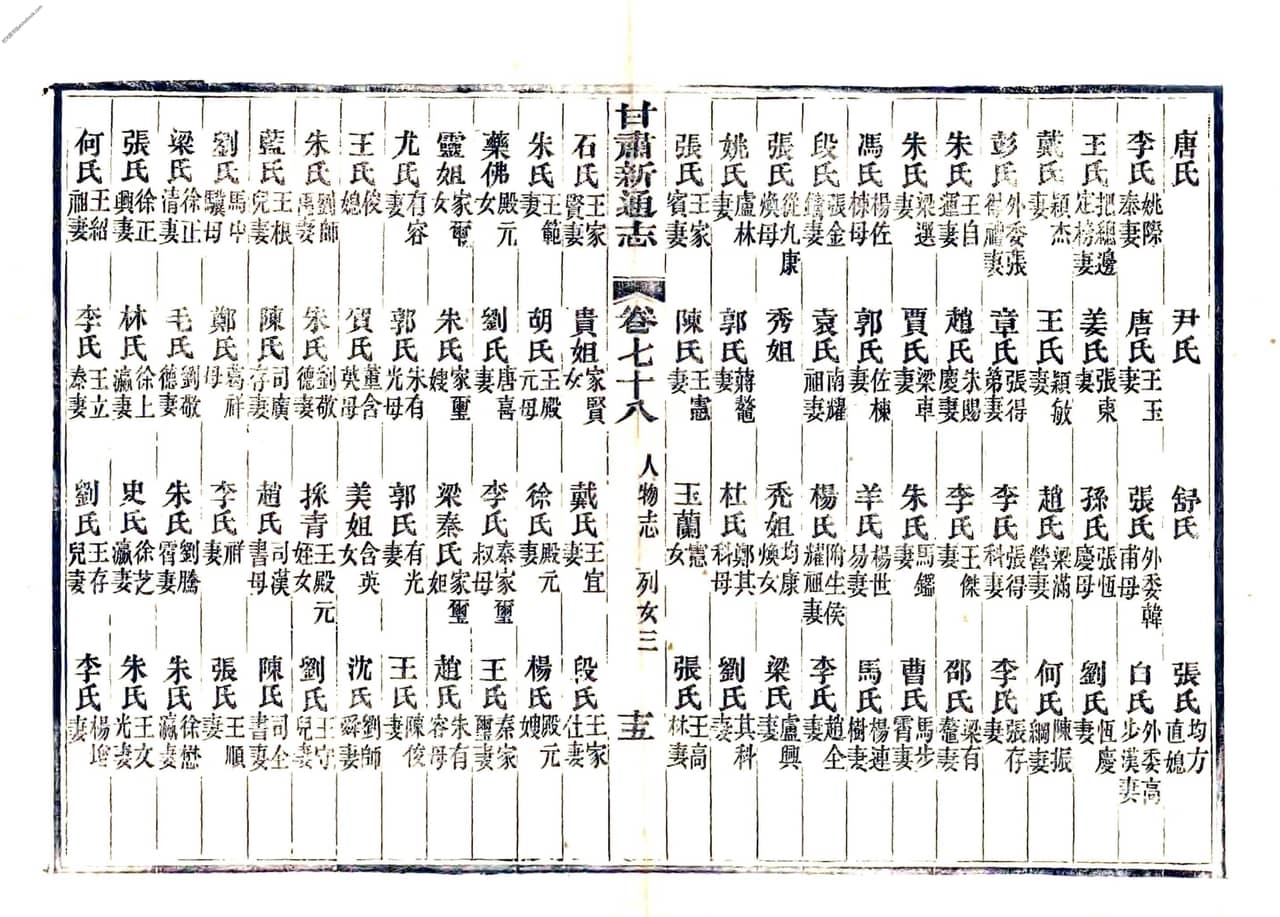 唐氏 尹氏 舒氏 張氏均方直媳
李氏姚際泰妻 唐氏王玉妻 張氏外委韓甫母 白氏外委高步漢妻
王氏把總邊定榜妻 姜氏張東妻 孫氏張恆慶母 劉氏恆慶妻
戴氏穎杰妻 王氏王穎敏妻 趙氏梁滿營妻 何氏陳振綱妻
彭氏外委張得禮妻 章氏張得第妻 李氏張得科妻 李氏張存妻
朱氏王自運妻 趙氏朱賜慶妻 李氏王傑妻 邵氏梁有鼇妻
朱氏梁選妻 賈氏梁車妻 朱氏馬鑑妻 曹氏馬步霄妻
馮氏楊佐棟母 郭氏佐棟妻 羊氏楊世易妻 馬氏楊連樹妻
段氏張金鑄妻 袁氏南耀祖妻 楊氏附生侯耀祖妻 李氏趙全妻
張氏從九康煥母 秀姐 禿姐均康煥女 梁氏盧興妻
姚氏盧林妻 郭氏蔣鼇妻 杜氏鄭其科母 劉氏其科妻
張氏王家賓妻 陳氏王憲妻 玉蘭憲女 張氏王高林妻
甘肅新通志 卷七十八 人物志 列女三 十五
石氏王家賢妻 貴姐家賢女 戴氏王宜妻 段氏王家仕妻
朱氏王範妻 胡氏王殿元母 徐氏殿元妻 楊氏殿元嫂
藥佛殿元女 劉氏唐喜妻 李氏秦家璽叔母 王氏秦家璽妻
靈姐家璽女 朱氏家璽嫂 梁秦氏家璽姐 趙氏朱有容母
尤氏有容妻 郭氏朱有光母 郭氏有光妻 王氏陳俊妻
王氏俊媳 賀氏董含英母 美姐含英女 沈氏劉師舜妻
朱氏劉師禹妻 朱氏劉敬德妻 採青王殿元姪女 劉氏王守兒妻
藍氏王根兒妻 陳氏司廣存妻 趙氏司漢書母 陳氏司全書妻
劉氏馬中驥母 鄭氏葛祥母 李氏祥妻 張氏王順妻
梁氏徐正清妻 毛氏劉敬德妻 朱氏劉騰霄妻 朱氏徐懋瀛妻
張氏徐正興妻 林氏徐上瀛妻 史氏徐芝瀛妻 朱氏王文光妻
何氏王紹祖妻 李氏王立泰妻 劉氏王存兒妻 李氏楊增妻